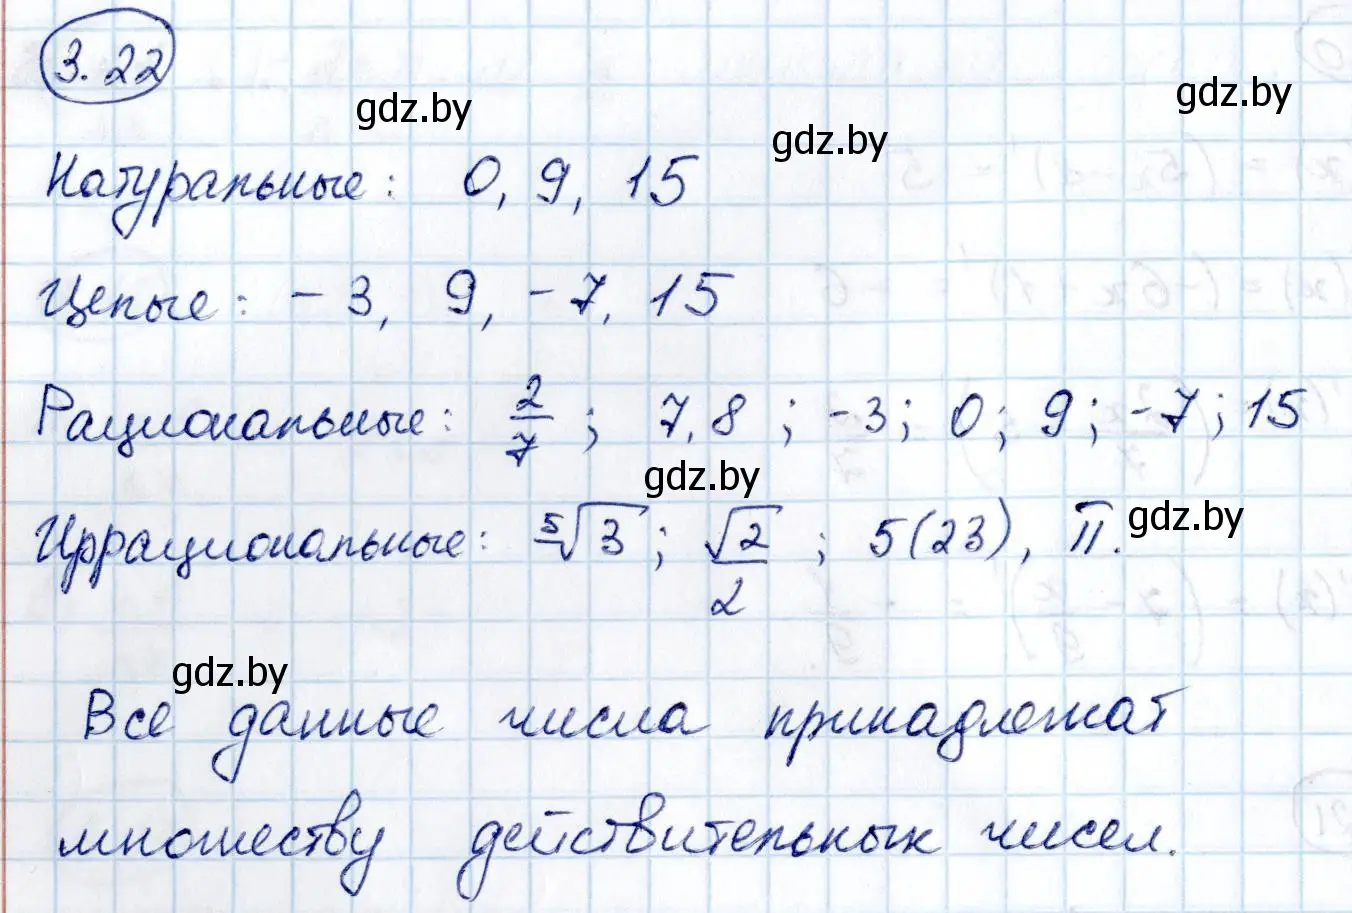 3.22
gdz.by
gdz.by
gdz.by
Натуральные: 0, 9, 15
Целые: -3, 9, -7, 15
Рациональные: 2/7 ; 7,8 ; -3; 0; 9; -7; 15
gdz.by
gdz.by
Иррациональные: ⁵√3; √2/2 ; 5(23), π.
gdz.by
Все данные числа принадлежат
множеству действительных чисел.